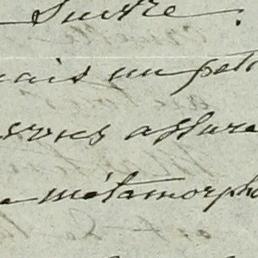 Suivre.
mais un peti
vous assure
métamorpho